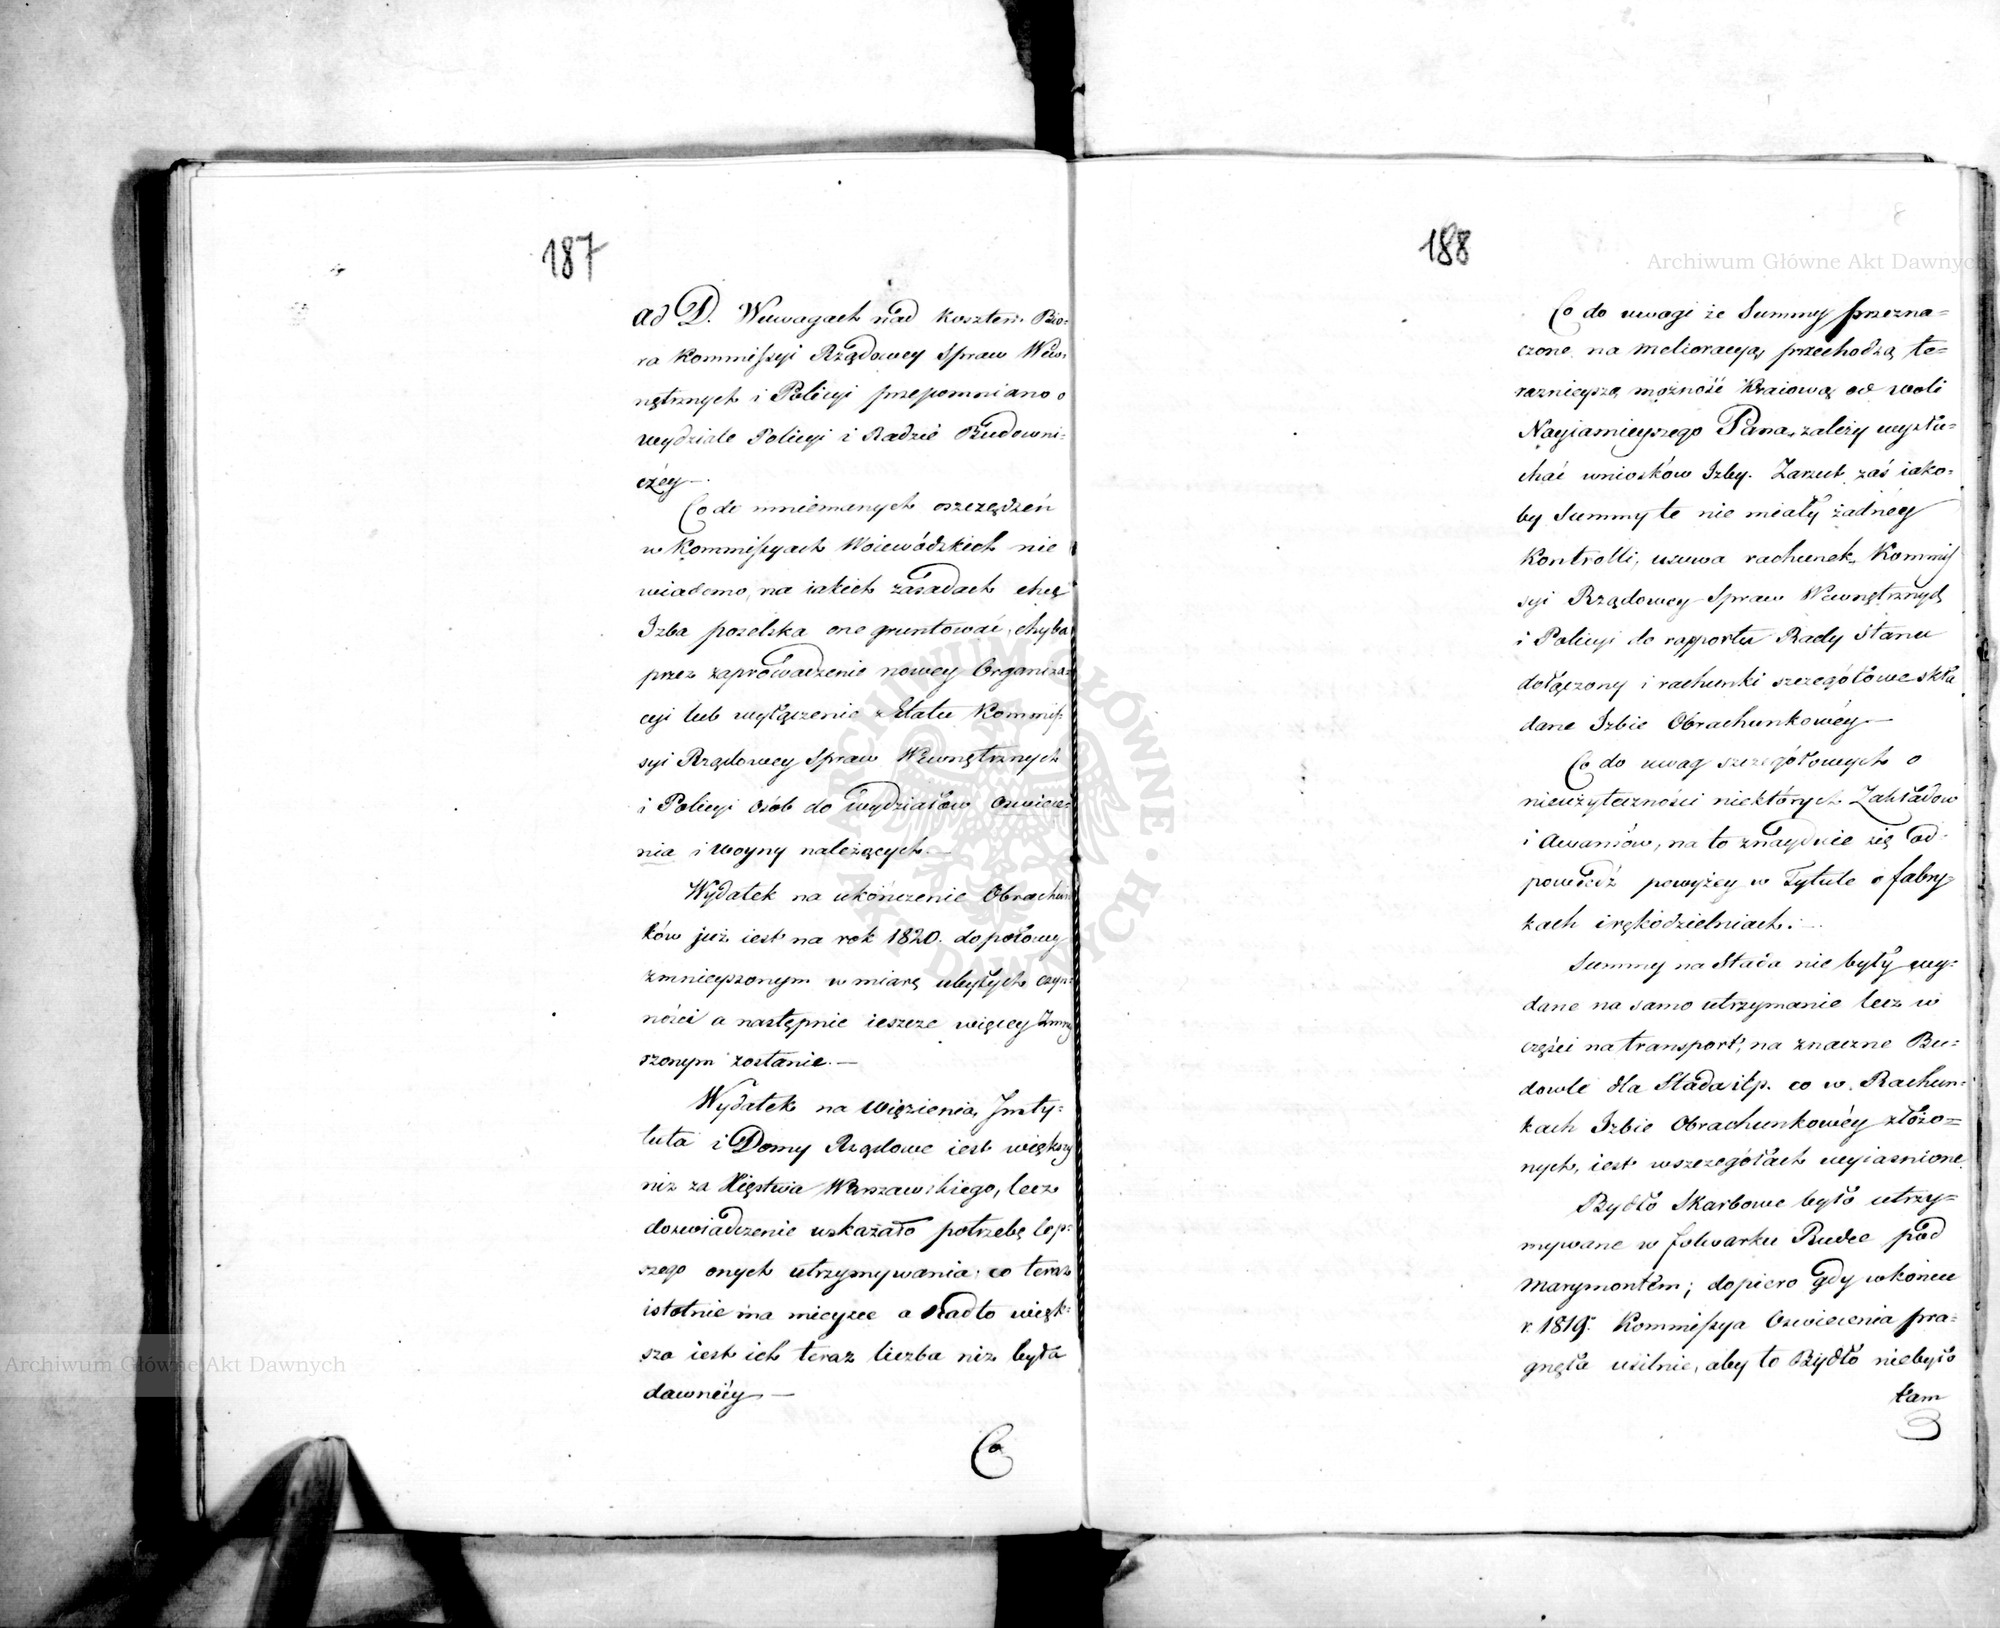 187
ad D. W uwagach nad kosztem Bio-
ra Kommissyi Rządowey Spraw Wew-
nętrznych i Policyi przepomniano o
wydziale Policyi i Radzie Budowni-
czéy —
Co do mniemanych oszczędzeń
w Kommissyach Woiewódzkich nie
wiadomo, na iakich zasadach chce
Izba poselska one gruntować, chyba
przez zaprowadzenie nowey Organiza-
cyi lub wyłączenie z Etatu Kommis-
syi Rządowey Spraw Wewnętrznych
i Policyi osób do wydziałów Oswiece-
nia i Woyny należących. —
Wydatek na ukończenie Obrachun
ków już iest na rok 1820. do połowy
zmnieyszonym w miarę ubyłych czyn-
ności a następnie ieszcze więcey Zmny
szonym zostanie. —
Wydatek na Więzienia, Insty-
tuta i Domy Rządowe iest większy
niż za Xięstwa Warszawskiego, lecz
doswiadczenie wskazało potrzebę lep-
szego onych utrzymywania, co teraz
istotnie ma mieysce a nadto więk-
sza iest ich teraz liczba niż była
dawniéy —
Co
188
Co do uwagi że Summy przezna-
czone na melioracyą, przechodzą te-
raznieyszą możność Kraiową od woli
Nayiasnieyszego Pana, zależy wysłu-
chać wniosków Izby. Zarzut zaś iako-
by Summy te nie miały żadnéy
Kontrolli, usuwa rachunek Kommis
syi Rządowey Spraw Wewnętrznych
i Policyi do rapportu Rady Stanu
dołączony i rachunki szczegółowe skła
dane Izbie Obrachunkowéy —
Co do uwag szczegółowych o
nieużyteczności niektórych Zakładów
i Awansów, na to znayduie się od-
powiedź powyżey w Tytule o fabry-
kach i rękodzielniach. —
Summy na Stada nie były wy-
dane na samo utrzymanie lecz w
części na transport, na znaczne Bu-
dowle dla Stada itp. co w Rachun-
kach Izbie Obrachunkowéy złożo-
nych, iest w szczegółach wyiasnione.
Bydło Skarbowe było utrzy-
mywane w folwarku Rudce pod
Marymontem; dopiero gdy w końcu
r. 1819. Kommissya Oswiecenia pra-
gnęła usilnie, aby to Bydło niebyło
tam
Archiwum Główne Akt Dawnych
Archiwum Główne Akt Dawnych
ARCHIWUM GŁÓWNE AKT DAWNYCH